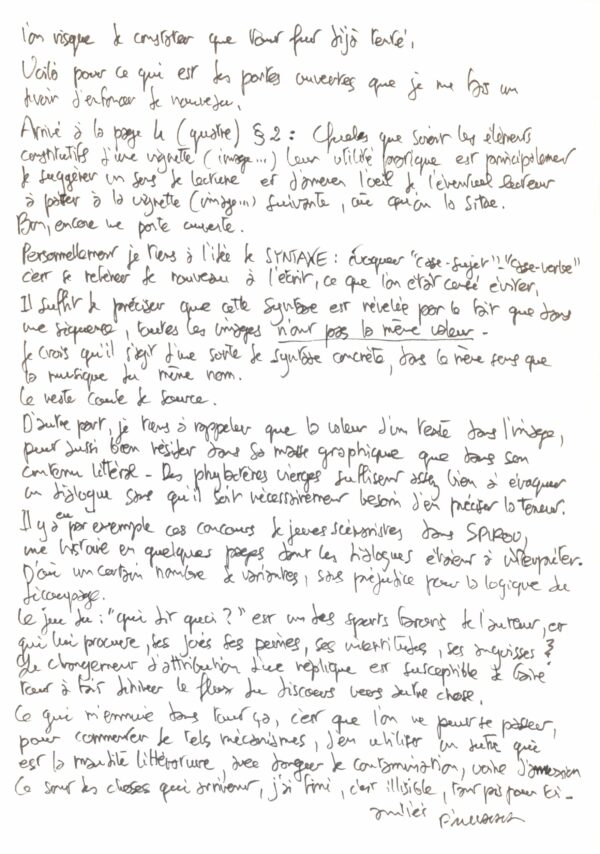 l'on risque de constater que tout fut déjà tenté.
Voilà pour ce qui est des portes ouvertes que je me fais un
devoir d'enfoncer de nouveau.
Arrivé à la page 4 (quatre) § 2 : Quels que soient les éléments
constitutifs d'une vignette (image...) leur utilité pratique est principalement
de suggérer un sens de lecture et d'amener l'oeil de l'éventuel lecteur
à passer à la vignette (image...) suivante, où qu'on la situe.
Bon, encore une porte ouverte.
Personnellement je tiens à l'idée de SYNTAXE : évoquer "case-sujet"-"case-verbe"
c'est se référer de nouveau à l'écrit, ce que l'on était censé éviter.
Il suffit de préciser que cette syntaxe est révélée par le fait que dans
une séquence, toutes les images n'ont pas la même valeur -
Je crois qu'il s'agit d'une sorte de syntaxe concrète, dans le même sens que
la musique du même nom.
Le reste coule de source.
D'autre part, je tiens à rappeler que la valeur d'un texte dans l'image,
peut aussi bien résider dans sa masse graphique que dans son
contenu littéral - Des phylactères vierges suffisent assez bien à évoquer
un dialogue sans qu'il soit nécessairement besoin d'en préciser la teneur.
Il y a eu par exemple ces concours de jeunes scénaristes dans SPIROU,
une histoire en quelques pages dont les dialogues étaient à interpréter.
D'où un certain nombre de variantes, sans préjudice pour la logique du
découpage.
Le jeu du : "qui dit quoi ?" est un des sports favoris de l'auteur, et
qui lui procure, ses joies ses peines, ses incertitudes, ses angoisses
Le changement d'attribution d'une réplique est susceptible de faire
tout à fait dériver le flux du discours vers autre chose.
Ce qui m'ennuie dans tout ça, c'est que l'on ne peut se passer,
pour commenter de tels mécanismes, d'en utiliser un autre qui
est la maudite littérature, avec danger de contamination, voire d'
Ce sont des choses qui arrivent, j'ai fini, c'est illisible, tant pis pour toi -
amitiés